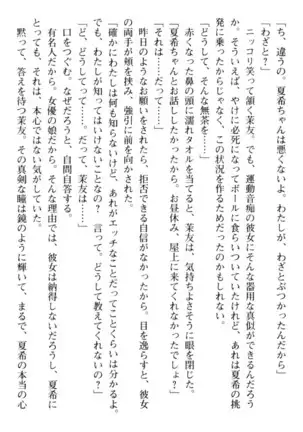 「ち、違うの。夏希ちゃんは悪くないよ。わたしが、わざとぶつかったんだから」
「わざと？」
ニッコリ笑って頷く茉友。でも、運動音痴の彼女にそんな器用な真似ができるんだろう
か。そういえば、やけに必死になってボールに食らいついていたけれど、あれは夏希の挑
発に乗ったからじゃなく、この状況を作るためだったのかもしれない。
「どうして、そんな無茶を……」
赤くなった鼻の頭に濡れタオルを当てると、茉友は、気持ちよさそうに眼を閉じた。
「夏希ちゃんとお話ししたかったから。お昼休み、屋上に来てくれなかったでしょ？」
「それは……だって……」
昨日のようなお願いをされたら、拒否できる自信がなかったから。目を逸らすと、彼女
の両手が頬を挟み、強引に前を向かされた。
「確かにわたしは何も知らないけど、あれがエッチなことだってことくらいは分かるよ。
でも、わたしが知ってはいけないことなの？　言って。どうして教えてくれないの？」
「ど、どうしてって……。だって、茉友は……」
口をつぐむ。なぜだろうと、自問自答する。
有名人だから。女優の娘だから。そんな理由では、彼女は納得しないだろうし、夏希に
とっても、それは、本心ではない気がしていた。
黙って、答えを待つ茉友。その真剣な瞳は鏡のように輝いて、まるで、夏希の本当の心